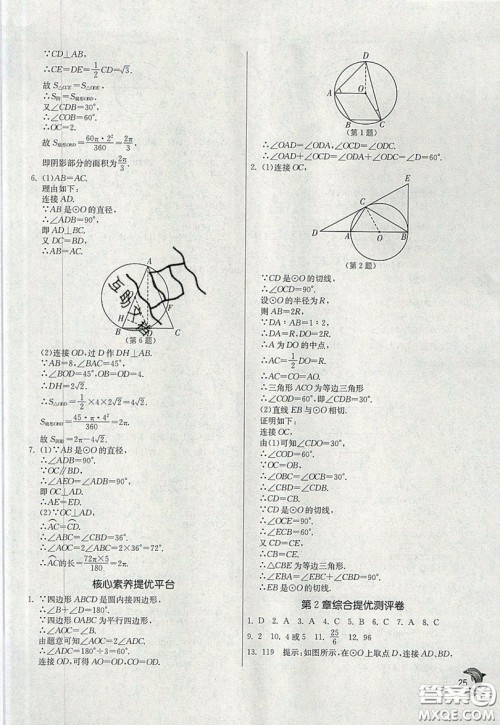 ∵CD⊥AB,
∴CE=DE=1/2CD=√3.
故 S△OCE=S△ODE.
∴S阴=S扇形OBD
又∠CDB=30°.
∴∠COB=60°.
∴OC=2.
故 S扇形OBD=60π·2²/360=2π/3.
即阴影部分的面积为2π/3.
6. (1)AB=AC.
理由如下:
连接 AD.
∵AB 是⊙O 的直径,
∴∠ADB=90°.
即 AD⊥BC.
又 DC=BD,
∴AB=AC.
A
H
O
B
D
C
互助文
(第 6 题)
(2)连接 OD,过 D 作 DH⊥AB.
∵AB=8,∠BAC=45°,
∴∠BOD=45°,OB=OD=4.
∴DH=2√2.
∴S△OBD=1/2×4×2√2=4√2
S扇形OBD=45·π·4²/360=2π.
故 S阴=2π-4√2.
7. (1)∵AB 是⊙O 的直径,
∴∠ADB=90°.
∵OC∥BD,
∴∠AEO=∠ADB=90°.
即 OC⊥AD.
∴AE=ED.
(2)∵OC⊥AD,
∴AC=CD.
∴∠ABC=∠CBD=36°.
∴∠AOC=2∠ABC=2×36°=72°.
∴AC的长=72π×5/180=2π.
核心素养提优平台
1. ∵四边形 ABCD 是圆内接四边形,
∴∠B+∠D=180°.
∵四边形 OABC 为平行四边形,
∴∠AOC=∠B.
由题意可知∠AOC=2∠D.
∴∠D+2∠D=180°.
∴∠D=60°.
连接 OD,则 AO=OD,CO=OD,
D
A
O
B
C
(第 1 题)
∴∠OAD=∠ODA,∠OCD=∠ODC.
∴∠OAD+∠OCD=∠ODA+∠ODC=∠D=60°.
2. (1)连接 OC,
E
C
D
A
O
B
(第 2 题)
∵CD 是⊙O 的切线,
∴∠OCD=90°.
设⊙O 的半径为 R,
则 AB=2R,
∵DA∶AB=1∶2,
∴DA=R,DO=2R.
∴A 为 DO 的中点,
∴AC=1/2DO=R.
∴AC=CO=AO.
∴三角形 ACO 为等边三角形
∴∠COD=60°.
∴∠CDB=30°.
(2)直线 EB 与⊙O 相切.
证明如下:
连接 OC,
由(1)可知∠CDB=30°.
∵∠COD=60°,
∴∠OBC=∠OCB=30°.
∴∠CBD=∠CDB.
∴CD=CB.
∵CD 是⊙O 的切线,
∴∠OCE=90°.
∴∠ECB=60°.
又∵∠CBE=60°,
∴△CBE 为等边三角形.
∴∠EBA=∠EBC+∠CBD=90°.
∴EB 是⊙O 的切线.
第 2 章综合提优测评卷
1. D 2. A 3. C 4. D 5. A 6. B 7. A 8. C
9. 2 10. 4或 5 11. 25/6 12. 12,96
13. 119 提示:如图所示,在⊙O 上取点 D,连接 AD,BD,
25
答案圈
MXQE.COM